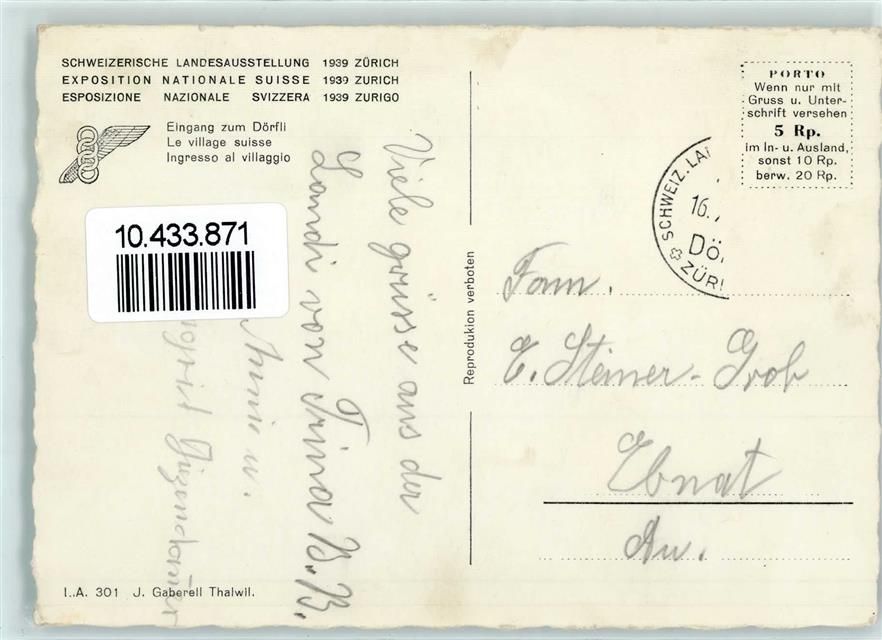 SCHWEIZERISCHE LANDESAUSSTELLUNG 1939 ZÜRICH
EXPOSITION NATIONALE SUISSE 1939 ZURICH
ESPOSIZIONE NAZIONALE SVIZZERA 1939 ZURIGO
Eingang zum Dörfli
Le village suisse
Ingresso al villaggio
10.433.871
Viele grüsse aus der
Landi von Trina B.B.
Annie u.
I.A. 301 J. Gaberell Thalwil.
Reprodukion verboten
PORTO
Wenn nur mit
Gruss u. Unter-
schrift versehen
5 Rp.
im In- u. Ausland,
sonst 10 Rp.
berw. 20 Rp.
SCHWEIZ. LA
16.
Dö
ZÜR
Fam.
E. Steiner-Grob
Ebnat
Au.